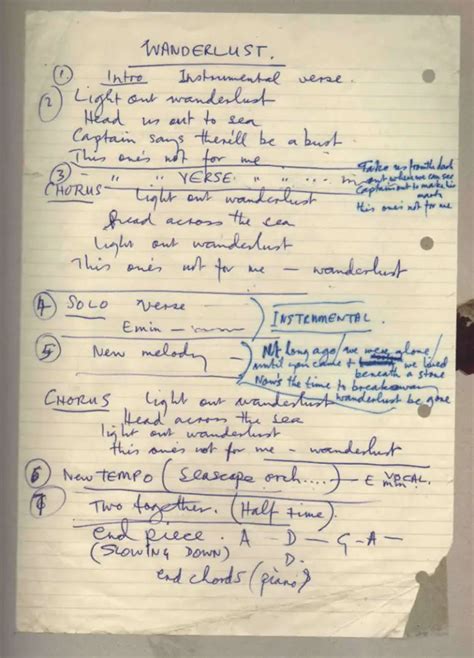 WANDERLUST.
① Intro Instrumental verse.
② Light out wanderlust
Head us out to sea
Captain says there'll be a bust
This one's not for me
③ - " - " VERSE. " " ...
Take us from the dark
out where we can see
Captain out to make his
mark
this one's not for me
CHORUS Light out wanderlust
Head across the sea
Light out wanderlust
This one's not for me – wanderlust
④ SOLO verse
Emin –
INSTRUMENTAL.
⑤ New melody –
Not long ago / we were alone /
until you came + we loved
beneath a stone
Now's the time to breakaway
wanderlust be gone
CHORUS Light out wanderlust
Head across the sea
light out wanderlust
this one's not for me – wanderlust
⑥ NEW TEMPO (Seascape orch....) – E min VOCAL.
⑦ Two together. (Half time).
End piece. A – D – G – A –
(SLOWING DOWN) D.
end chords (piano)